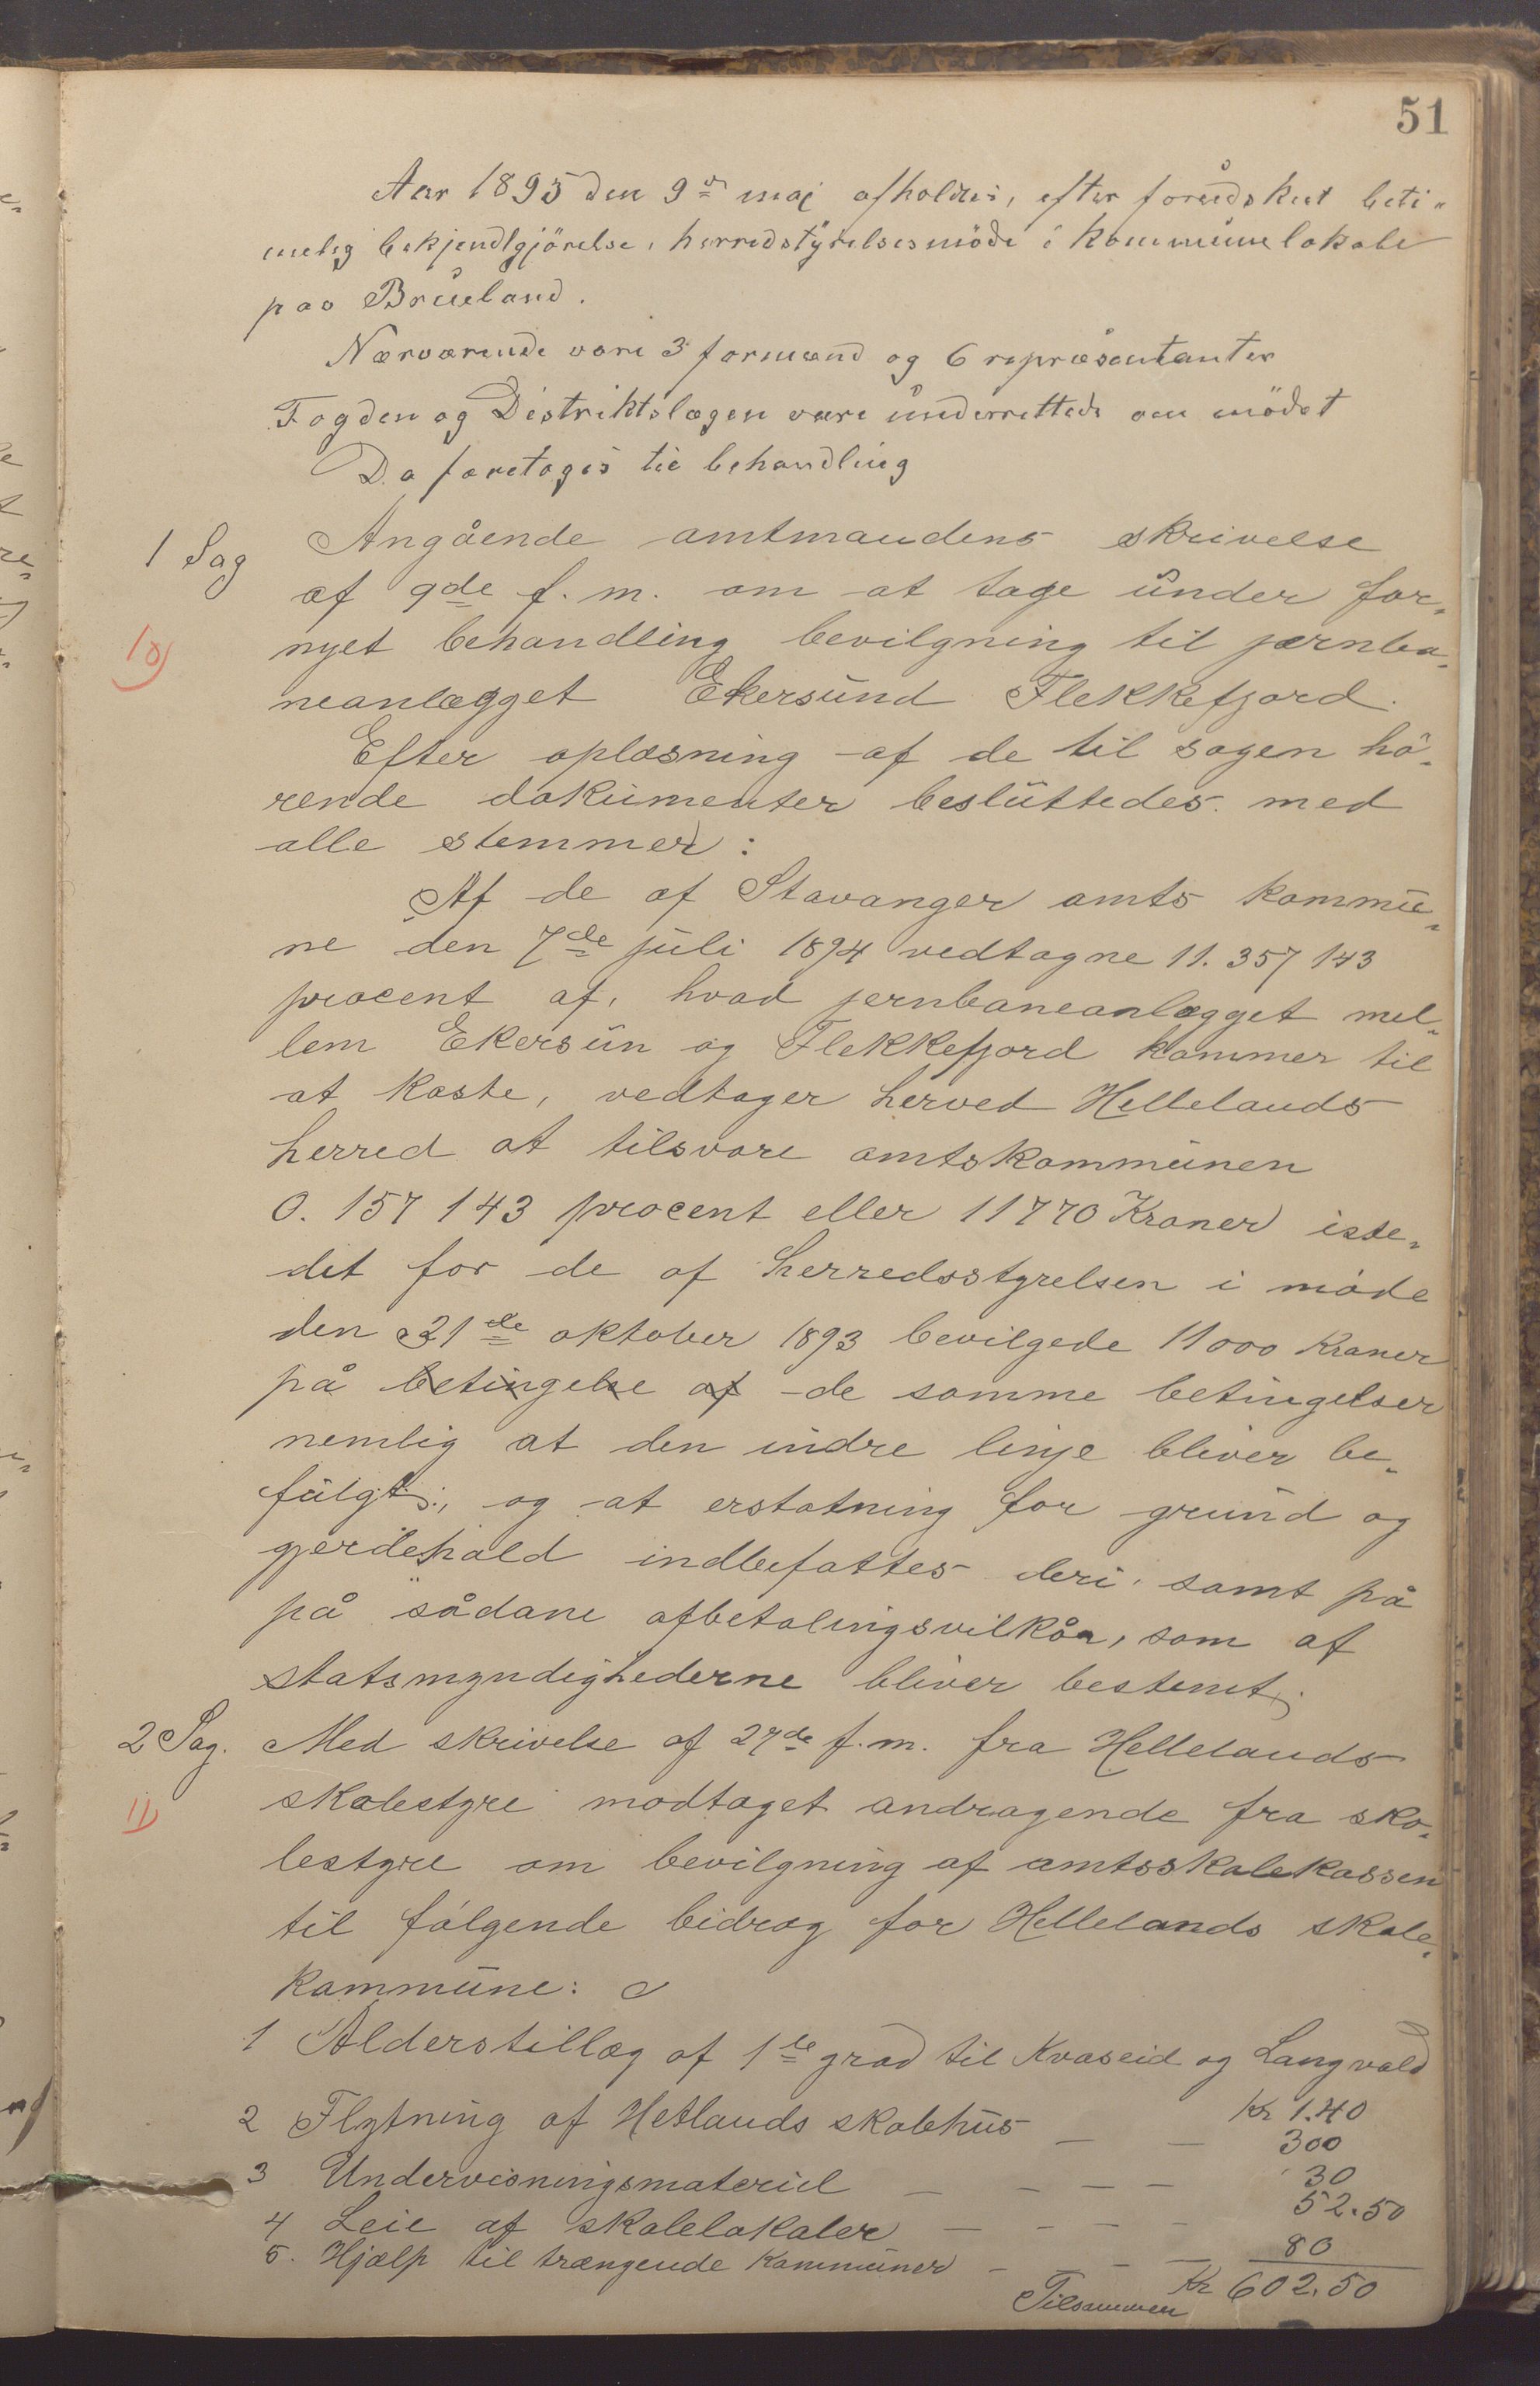 51
Aar 1895 den 9de maj afholdtes, efter forudskut beti-
melig bekjendtgjörelse, herredstyrelsesmöde i kommunelokale
paa Brueland.
Nærværende vare 3 formænd og 6 repræsentanter
Fogden og Distriktslægen vare underrettede om mödet
Da foretoges til behandling
1 Sag Angående amtmandens skrivelse
af 9de f. m. om at tage under for-
10) nyet behandling bevilgning til jernba-
neanlægget Ekersund Flekkefjord.
Efter oplæsning af de til sagen hö-
rende dokumenter besluttedes med
alle stemmer:
Af de af Stavanger amts kommu-
ne den 7de juli 1894 vedtagne 11.357 143
procent af, hvad jernbaneanlægget mel-
lem Ekersun og Flekkefjord kommer til
at koste, vedtager herved Hellelands
herred at tilsvare amtskommunen
0.157 143 procent eller 11770 Kroner iste-
det for de af herredsstyrelsen i möde
den 31de oktober 1893 bevilgede 11000 Kroner
på betingelse af de samme betingelser
nemlig at den indre linje bliver be-
fulgt, og at erstatning for grund og
gjerdehold indbefattes deri, samt på
på sådane afbetalingsvilkår, som af
statsmyndighederne bliver bestemt.
2 Sag. Med skrivelse af 27de f.m. fra Hellelands
11) skolestyre modtaget andragende fra sko-
lestyre om bevilgning af amtsskolekassen
til fölgende bidrag for Hellelands skole-
kommune:
1 Alderstillæg af 1ste grad til Kvaseid og Langvald
Kr 1.40
2 Flytning af Hetlands skolehus — — 300
3 Undervisningsmateriel — — — — 30
4 Leie af skolelokaler — — — — 52.50
5. Hjælp til trængende Kommuner — — — 80
Tilsammen Kr 602.50